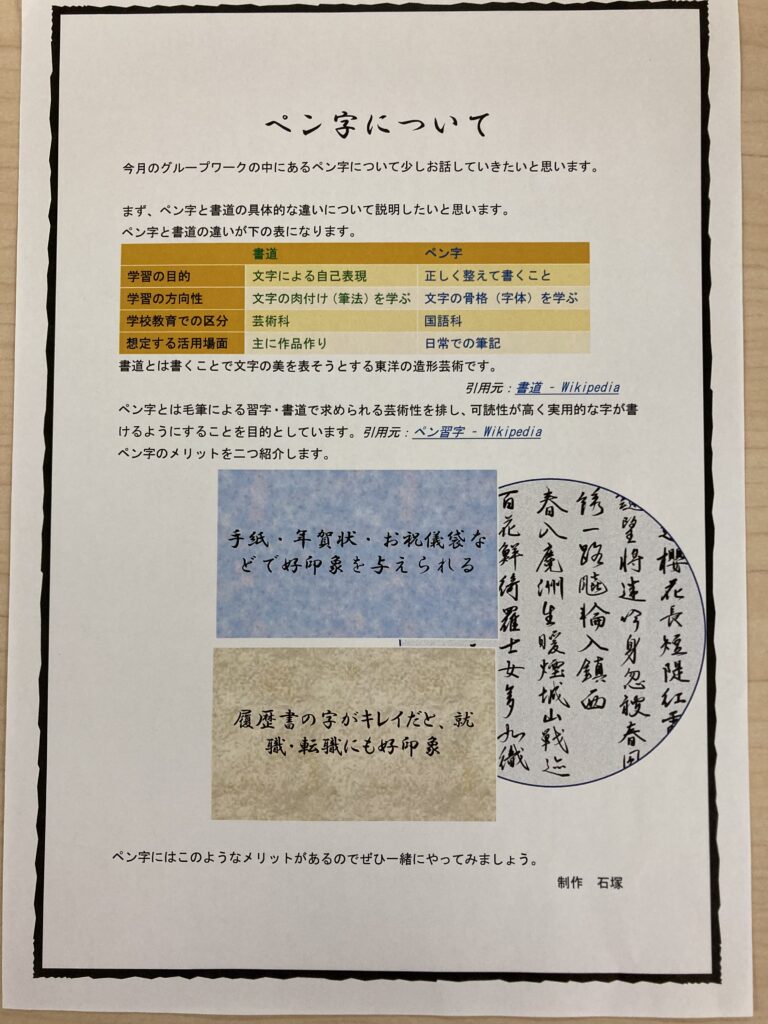 ペン字について
今月のグループワークの中にあるペン字について少しお話していきたいと思います。
まず、ペン字と書道の具体的な違いについて説明したいと思います。
ペン字と書道の違いが下の表になります。
書道 ペン字
学習の目的 文字による自己表現 正しく整えて書くこと
学習の方向性 文字の肉付け(筆法)を学ぶ 文字の骨格(字体)を学ぶ
学校教育での区分 芸術科 国語科
想定する活用場面 主に作品作り 日常での筆記
書道とは書くことで文字の美を表そうとする東洋の造形芸術です。
引用元:書道 - Wikipedia
ペン字とは毛筆による習字・書道で求められる芸術性を排し、可読性が高く実用的な字が書
けるようにすることを目的としています。引用元:ペン習字 - Wikipedia
ペン字のメリットを二つ紹介します。
手紙・年賀状・お祝儀袋な
どで好印象を与えられる
履歴書の字がキレイだと、就
職・転職にも好印象
櫻花長短隄紅
望将速吟身忽被春
一路驗輪入鎮西
春入魔洲生暖煙城山戦迹
百花鮮綺羅士女多如織
ペン字にはこのようなメリットがあるのでぜひ一緒にやってみましょう。
制作 石塚